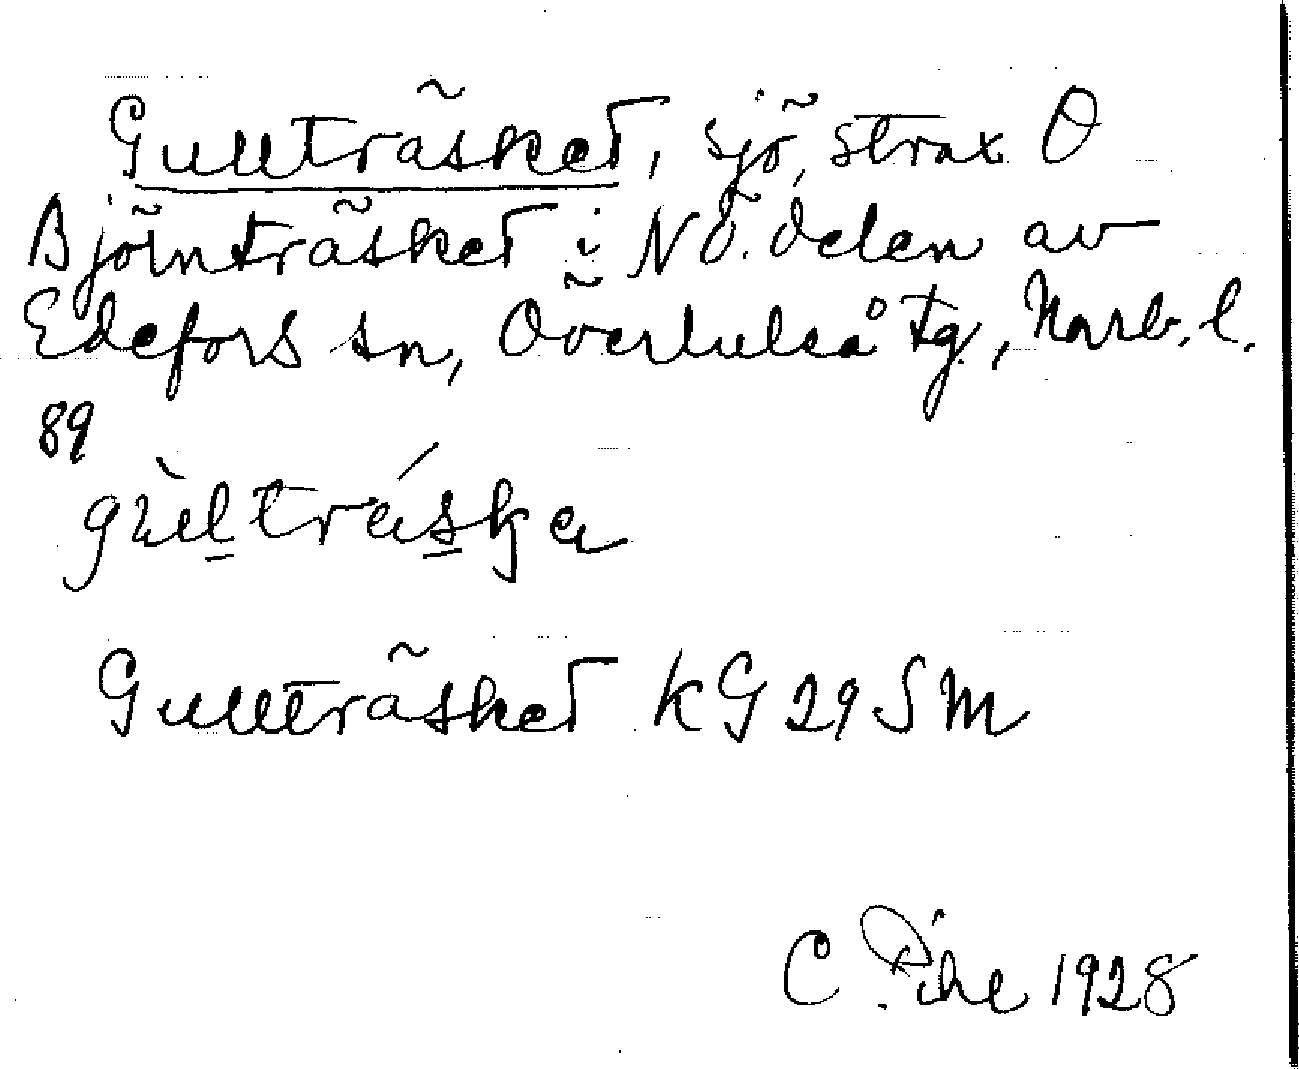 Gullträsket, sjö, strax O
Björnträsket i NÖ. delen av
Edefors sn, Överluleå tg., Norrb. l.
89
gùl̠trás̠ka
Gullträsket KG 29 SM
C. Pihl 1928